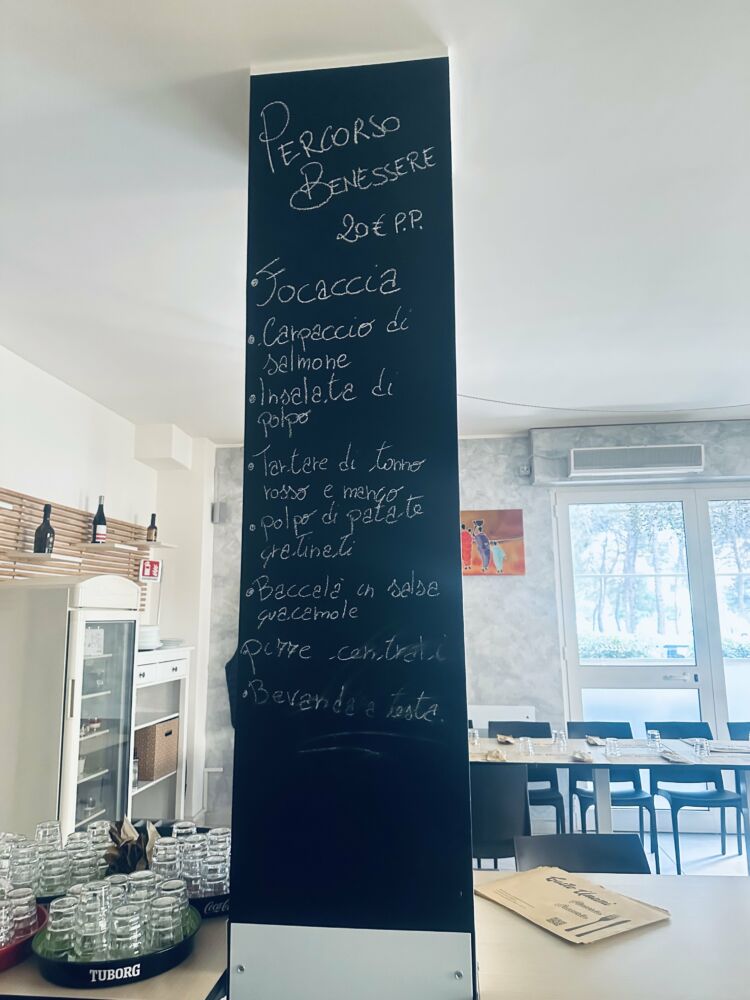 PERCORSO
BENESSERE
20€ P.P.
• Focaccia
• Carpaccio di
salmone
• Insalata di
polpo
• Tartare di tonno
rosso e mango
• polpo di patate
gratinati
• Baccalà in salsa
guacamole
pizze centrali
• Bevanda a testa.
TUBORG
Coca-Cola